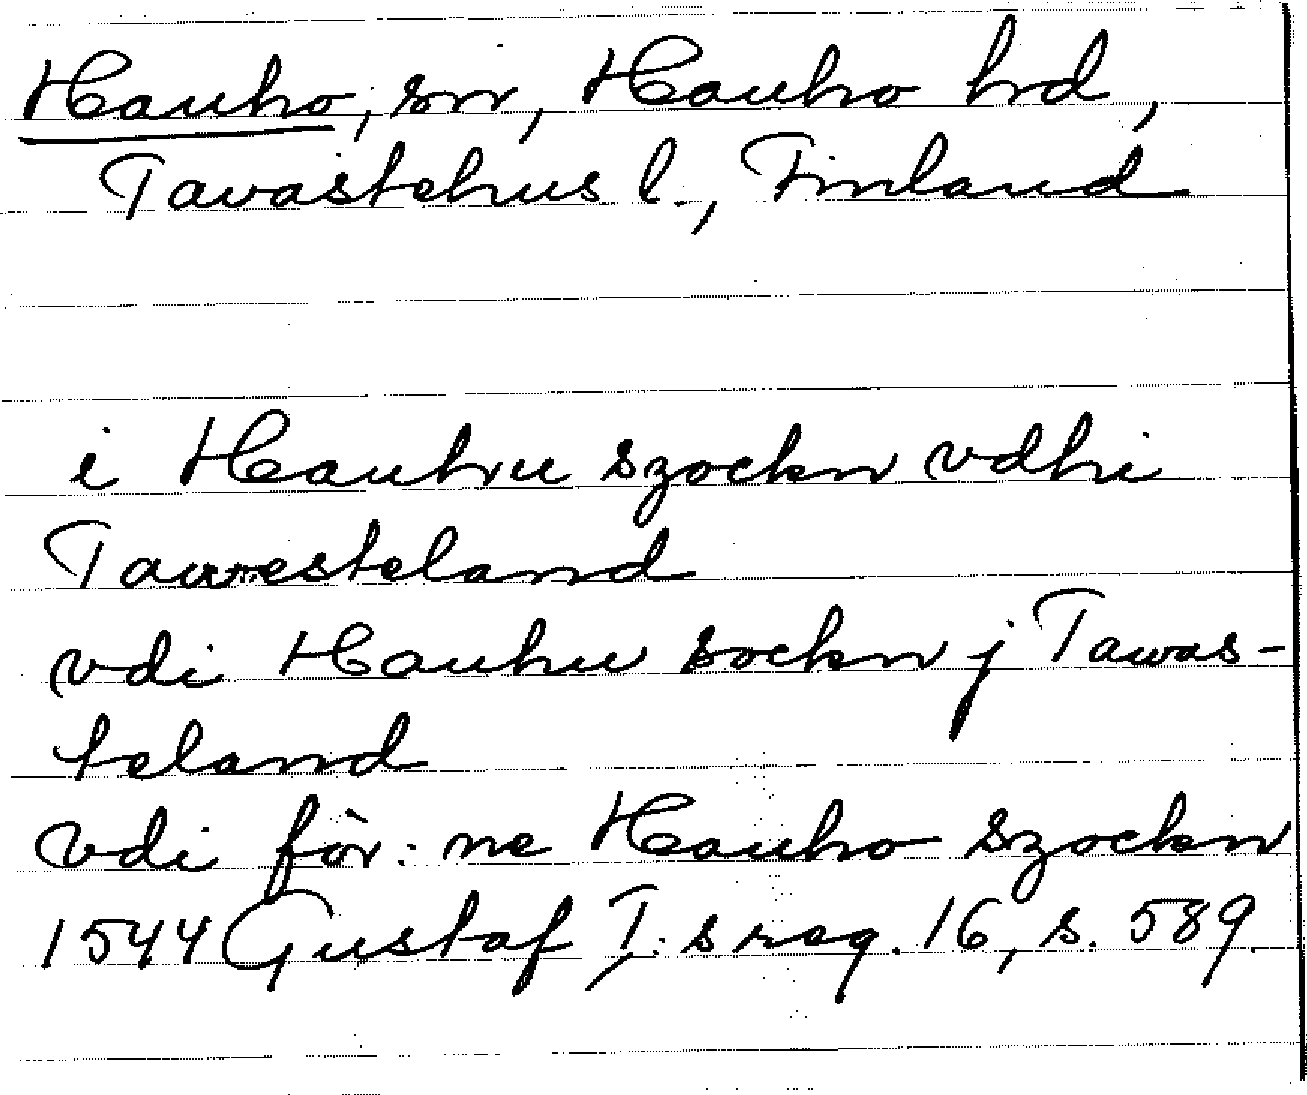 Hauho, sn, Hauho hd,
Tavastehus l., Finland
i Hauhu szockn vdhi
Tawesteland
vdi Hauhu sockn j Tawas-
teland
vdi för: ne Hauho szockn
1544 Gustaf I: s reg. 16, s. 589.